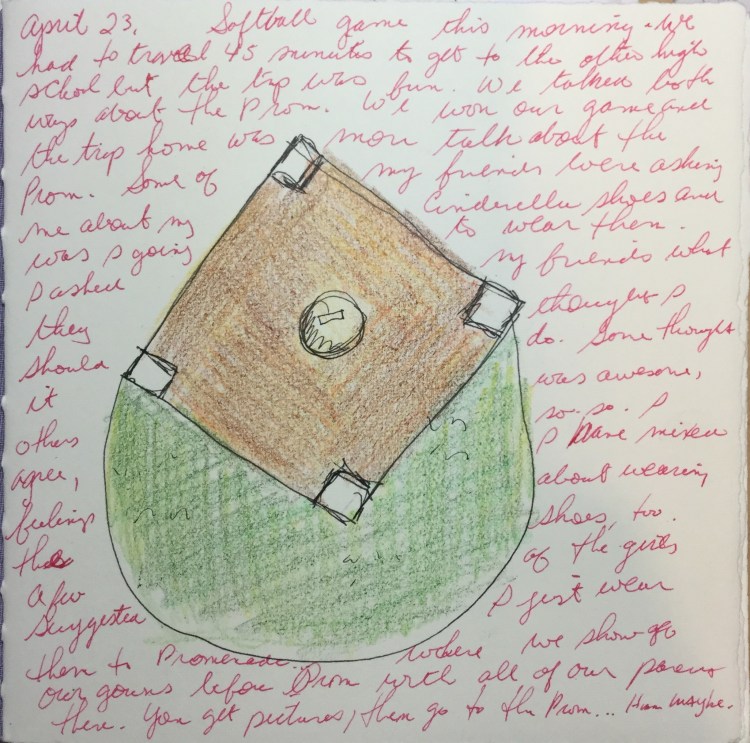 April 23. Softball game this morning. We
had to travel 45 minutes to get to the other high
school but the trip was fun. We talked both
ways about the Prom. We won our game and
the trip home was more talk about the
Prom. Some of my friends were asking
me about my Cinderella shoes and
was I going to wear them.
I asked my friends what
they thought I
should do. Some thought
it was awesome,
others so-so. I
agree, I have mixed
feelings about wearing
the shoes, too.
A few of the girls
suggested I just wear
them to Promenade... where we show off
our gowns before Prom with all of our parents
there. You get pictures, then go to the Prom... Hum Maybe.